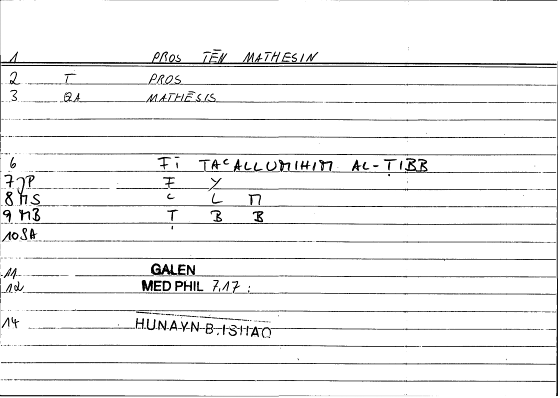 1 PROS TĒN MATHESIN
2 T PROS
3 QA MATHĒSIS
6 FĪ TAᶜALLUMIHIM AL-ṬIBB
7 JP F Y
8 MS ᶜ L M
9 MB Ṭ B B
10 SA
11 GALEN
12 MED PHIL 7,17 :
14 ḤUNAYN B. ISḤAQ